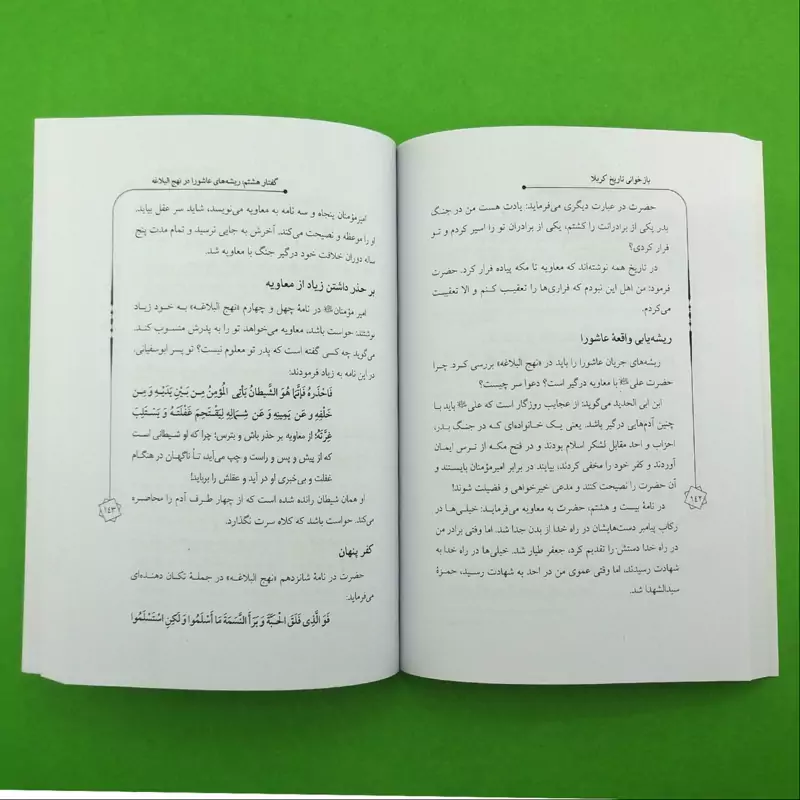 بازخوانی تاریخ کربلا
حضرت در عبارت دیگری می‌فرماید: یادت هست من در جنگ
بدر یکی از برادرانت را کشتم، یکی از برادران تو را اسیر کردم و تو
فرار کردی؟
در تاریخ همه نوشته‌اند که معاویه تا مکه پیاده فرار کرد. حضرت
فرمود: من اهل این نبودم که فراری‌ها را تعقیب کنم و الا تعقیبت
می‌کردم.
ریشه‌یابی واقعهٔ عاشورا
ریشه‌های جریان عاشورا را باید در «نهج البلاغه» بررسی کرد. چرا
حضرت علی با معاویه درگیر است؟ دعوا سر چیست؟
ابن ابی الحدید می‌گوید: از عجایب روزگار است که علی باید با
چنین آدم‌هایی درگیر باشد. یعنی یک خانواده‌ای که در جنگ بدر،
احزاب و احد مقابل لشکر اسلام بودند و در فتح مکه از ترس ایمان
آوردند و کفر خود را مخفی کردند، بیایند در برابر امیرمؤمنان بایستند و
آن حضرت را نصیحت کنند و مدعی خیرخواهی و فضیلت شوند!
در نامهٔ بیست و هشتم، حضرت به معاویه می‌فرماید: خیلی‌ها در
رکاب پیامبر دست‌هایشان در راه خدا از بدن جدا شد. اما وقتی برادر من
در راه خدا دستش را تقدیم کرد، جعفر طیار شد. خیلی‌ها در راه خدا به
شهادت رسیدند، اما وقتی عموی من در احد به شهادت رسید، حمزهٔ
سیدالشهدا شد.
۱۴۲
گفتار هشتم: ریشه‌های عاشورا در نهج البلاغه
امیرمؤمنان پنجاه و سه نامه به معاویه می‌نویسد، شاید سر عقل بیاید.
او را موعظه و نصیحت می‌کند. آخرش به جایی نرسید و تمام مدت پنج
ساله دوران خلافت خود درگیر جنگ با معاویه شد.
بر حذر داشتن زیاد از معاویه
امیر مؤمنان در نامهٔ چهل و چهارم «نهج البلاغه» به خود زیاد
نوشتند: حواست باشد، معاویه می‌خواهد تو را به پدرش منسوب کند.
می‌گوید چه کسی گفته است که پدر تو معلوم نیست؟ تو پسر ابوسفیانی.
در این نامه به زیاد فرمودند:
فَاحْذَرْهُ فَإِنَّمَا هُوَ الشَّيْطَانُ يَأْتِي الْمُؤْمِنَ مِنْ بَيْنِ يَدَيْهِ وَ مِنْ
خَلْفِهِ وَ عَنْ يَمِينِهِ وَ عَنْ شِمَالِهِ لِيَقْتَحِمَ غَفْلَتَهُ وَ يَسْتَلِبَ
غِرَّتَهُ؛ از معاویه بر حذر باش و بترس؛ چرا که او شیطانی است
که از پیش و پس و راست و چپ می‌آید، تا ناگهان در هنگام
غفلت و بی‌خبری او در آید و عقلش را برباید!
او همان شیطان رانده شده است که از چهار طرف آدم را محاصره
می‌کند. حواست باشد که کلاه سرت نگذارد.
کفر پنهان
حضرت در نامهٔ شانزدهم «نهج البلاغه» در جملهٔ تکان دهنده‌ای
می‌فرماید:
فَوَ الَّذِي فَلَقَ الْحَبَّةَ وَ بَرَأَ النَّسَمَةَ مَا أَسْلَمُوا وَ لَكِنِ اسْتَسْلَمُوا
۱۴۳